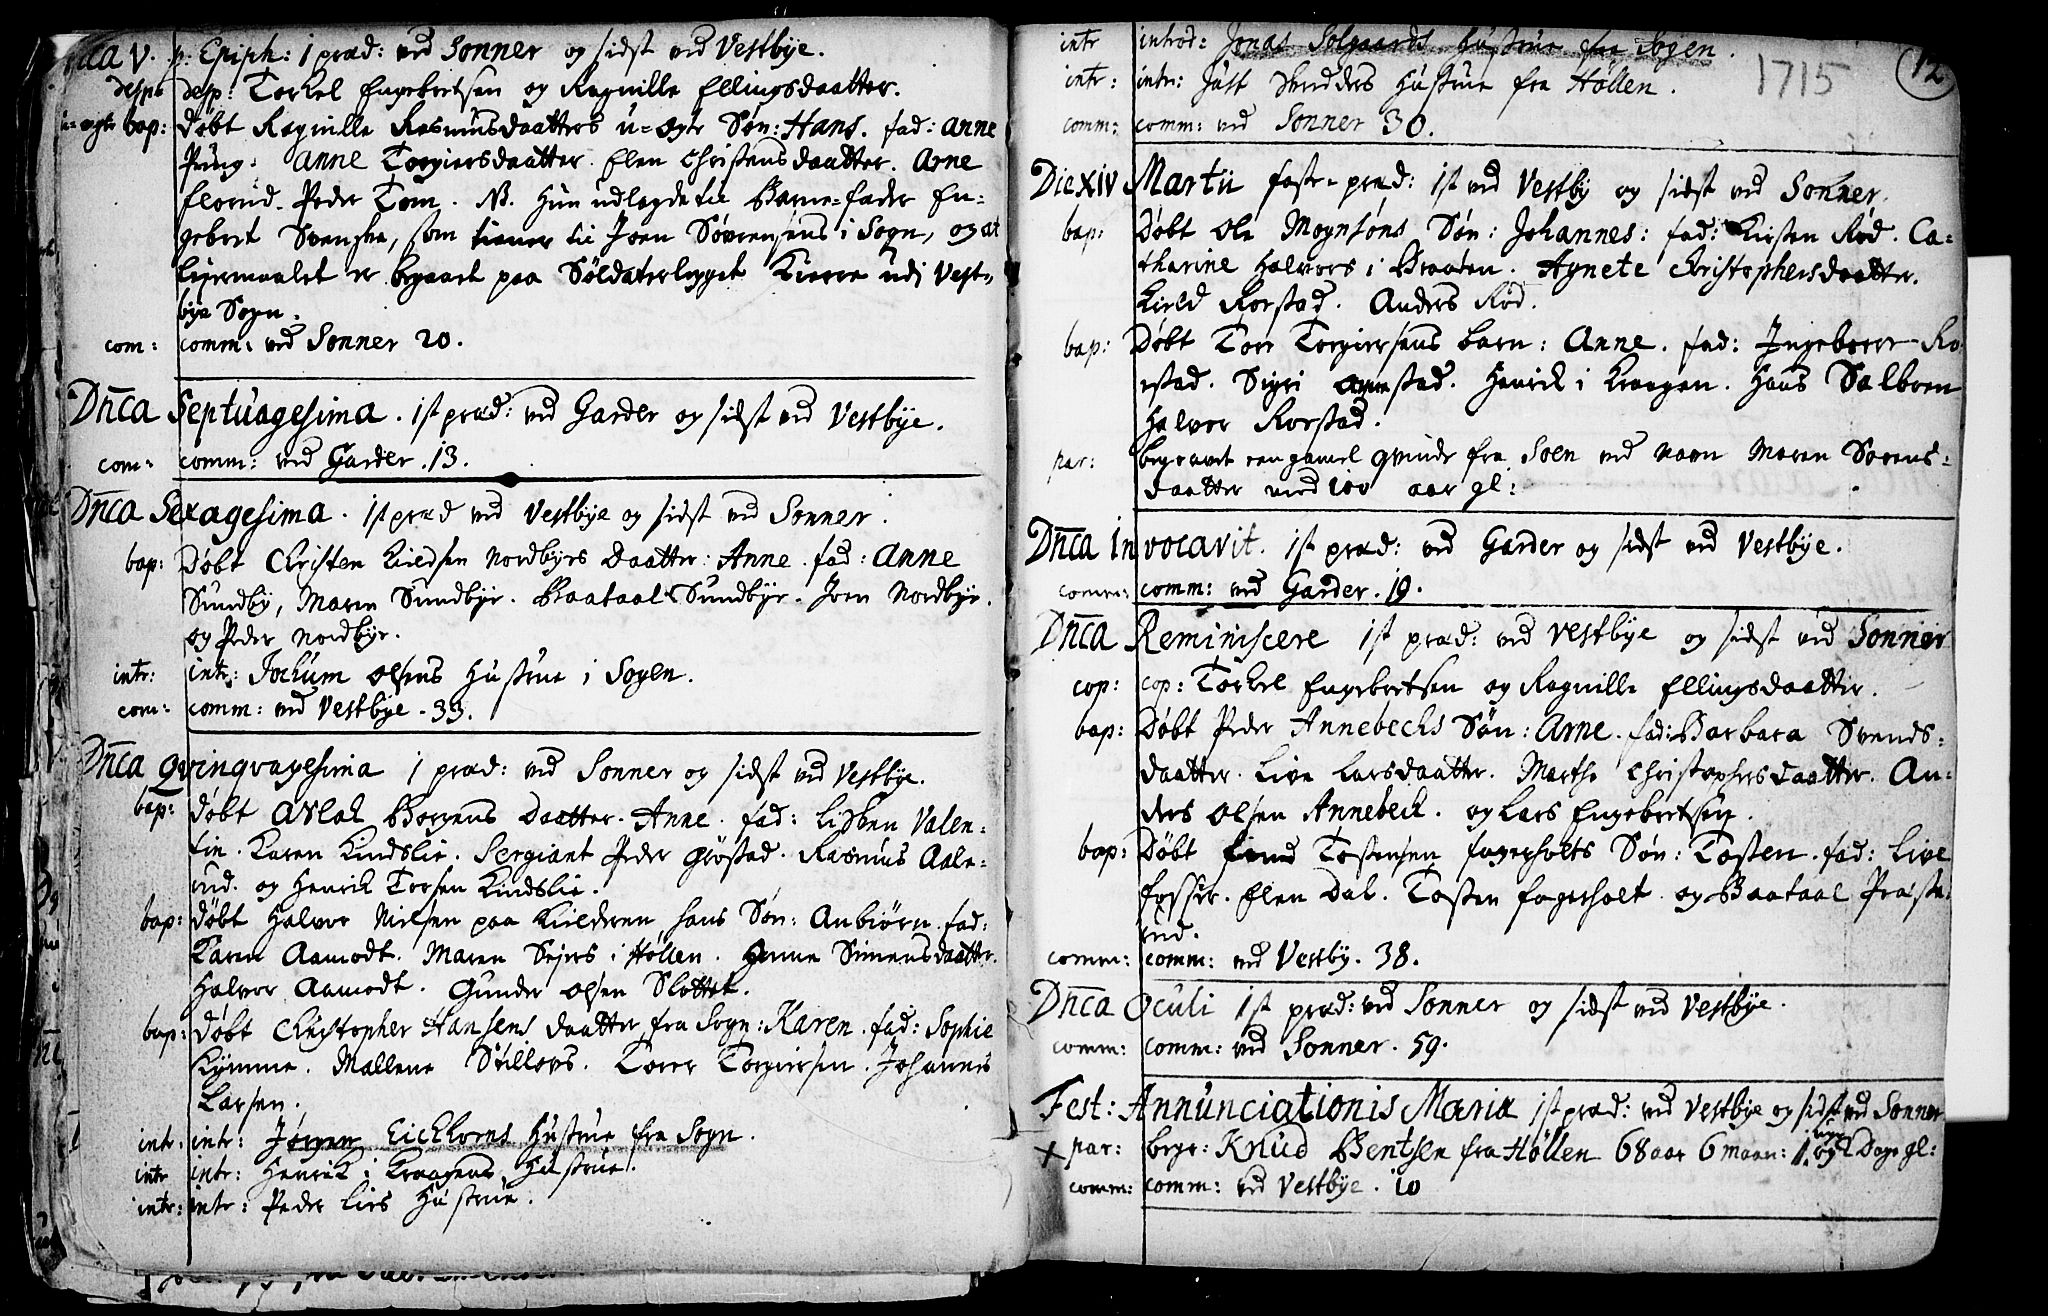 Dn̄ca V. p. Epiph: 1 præd: ved Sonner og sidst ved Vestbye.
desp: desp: Torkel Engebretsen og Ragnille Ellingsdaatter.
u-ægte bap: Døbt Ragnille Rasmusdaatters u-ægte Søn: Hans. fad: Anne
Pung: Anne Torgiersdaatter. Elen Christensdaatter. Arne
Florud. Peder Tom. NB. Hun udlagde til Barne-fader En-
gebret Svenske, som tiener til Joen Sørensens i Sogn, og at
leyermaalet er begaaet paa Soldaterlegget Kierre udi Vest-
bye Sogn.
com: comm: ved Sonner 20.
Dn̄ca Septuagesima. 1st præd: ved Garder og sidst ved Vestbye.
com: comm: ved Garder. 13.
Dn̄ca Sexagesima. 1st præd ved Vestbye og sidst ved Sonner.
bap: Døbt Christen Kieldsen Nordbyes Daatter: Anne. fad: Anne
Sundby, Maren Sundbye. Baataal Sundbye. Joen Nordbye.
og Peder Nordbye.
intr: intr: Jochum Olsens Hustrue i Sogen.
com: comm: ved Vestbye. 33.
Dn̄ca Qvinqvagesima 1 præd: ved Sonner og sidst ved Vestbye.
bap: døbt Aslak Borgens Daatter. Anne. fad: Lisben Valen-
tin. Karen Kindslie. Sergiant Peder Grøstad. Rasmus Aale-
rud. og Henrik Torsen Kindslie.
bap: døbt Halvor Nielsen paa Kielderen hans Søn: Anbiørn. fad:
Karen Aamodt. Maren Sejers i Hollen. Hanne Simensdaatter.
Halvor Aamodt. Gunder Olsen Slottet.
bap: døbt Christopher Hansens daatter fra Sogn: Karen. fad: Sophie
Kymme. Mallene Stillovs. Torer Torgiersen. Johannes
Larsen.
intr: intr: Jørgen Eickhorns Hustrue fra Sogn.
intr intr: Henrik i Kraagens Hustrue.
intr: intr: Peder Lies Hustrue.
intr introd: Jonas Solgaards Hustrue fra Sogen.
12
1715
intr: intr: Just Skredders Hustrue fra Höllen.
comm: comm: ved Sonner 30.
Die XIV Martii faste-præd: 1st ved Vestby og sidst ved Sonner.
bap: Døbt Ole Mognsøns Søn: Johannes: fad: Kirsten Rød. Ca-
tharine Halvors i Braaten. Agnete Christophersdaatter.
Kield Rorstad. Anders Rød.
bap: Døbt Tore Torgiersens barn: Anne. fad: Ingeborre Ro
rstad. Sigri Arnestad. Henrik i Kraagen. Hans Solbreu
Halvor Rorstad.
par: begravet een gamel qvinde fra Soen ved navn Maren Sørens-
daatter ved 100 aar gl:
Dn̄ca Invocavit. 1st præd: ved Garder og sidst ved Vestbye.
comm: comm: ved Garder. 19.
Dn̄ca Reminiscere 1st præd: ved Vestbye og sidst ved Sonner
cop: cop: Torkel Engebretsen og Ragnille Ellingsdaatter.
bap: Døbt Peder Annebechs Søn: Arne. fad: Barbara Svends-
daatter. Live Larsdaatter. Marthe Christophersdaatter. An-
ders Olsen Annebeck. og Lars Engebretsen.
bap: Døbt Tostensen Fagerholts Søn: Tosten. fad: Live
Fosser. Elen Dal. Tosten Fagerholt. og Baataal Præste-
rud.
comm: comm: ved Vestby. 38.
Dn̄ca Oculi 1st præd: ved Sonner og sidst ved Vestbye.
comm: comm: ved Sonner. 59.
Fest: Annunciationis Mariæ 1st præd: ved Vestbye og sidst ved Sonner
+ par: begr: Knud Bentsen fra Höllen 68 aar 6 maan: 1 uge og 2 Dage gl:
comm: comm: ved Vestbye. 10